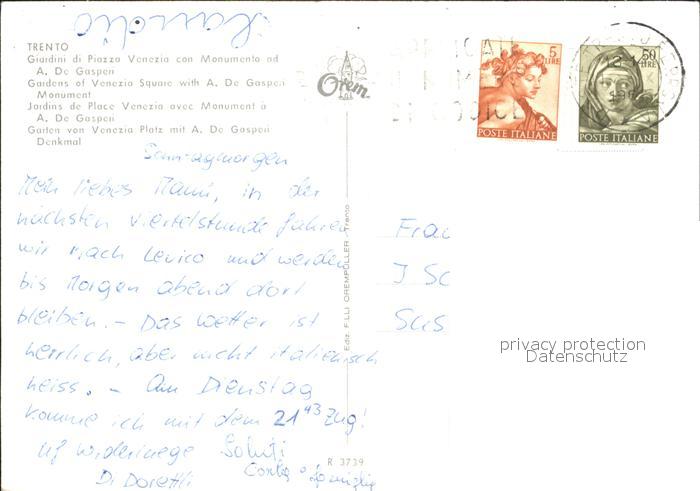 TRENTO
Giardini di Piazza Venezia con Monumento ad
A. De Gasperi
Gardens of Venezia Square with A. De Gasperi
Monument
Jardins de Place Venezia avec Monument à
A. De Gasperi
Garten von Venezia Platz mit A. De Gasperi
Denkmal
Orem
5
LIRE
POSTE ITALIANE
50
LIRE
POSTE ITALIANE
Sonntagmorgen
Mein liebes Mami, in der
nächsten Viertelstunde fahren
wir nach Levico und werden
bis Morgen abend dort
bleiben. – Das Wetter ist
herrlich, aber nicht italienisch
heiss. – Am Dienstag
komme ich mit dem 21 43 Zug!
uf widerluege Saluti
Di Doretli
Ediz. F.LLI OREMPÜLLER - Trento
R 3739
Frau
J Sc
Sus
privacy protection
Datenschutz